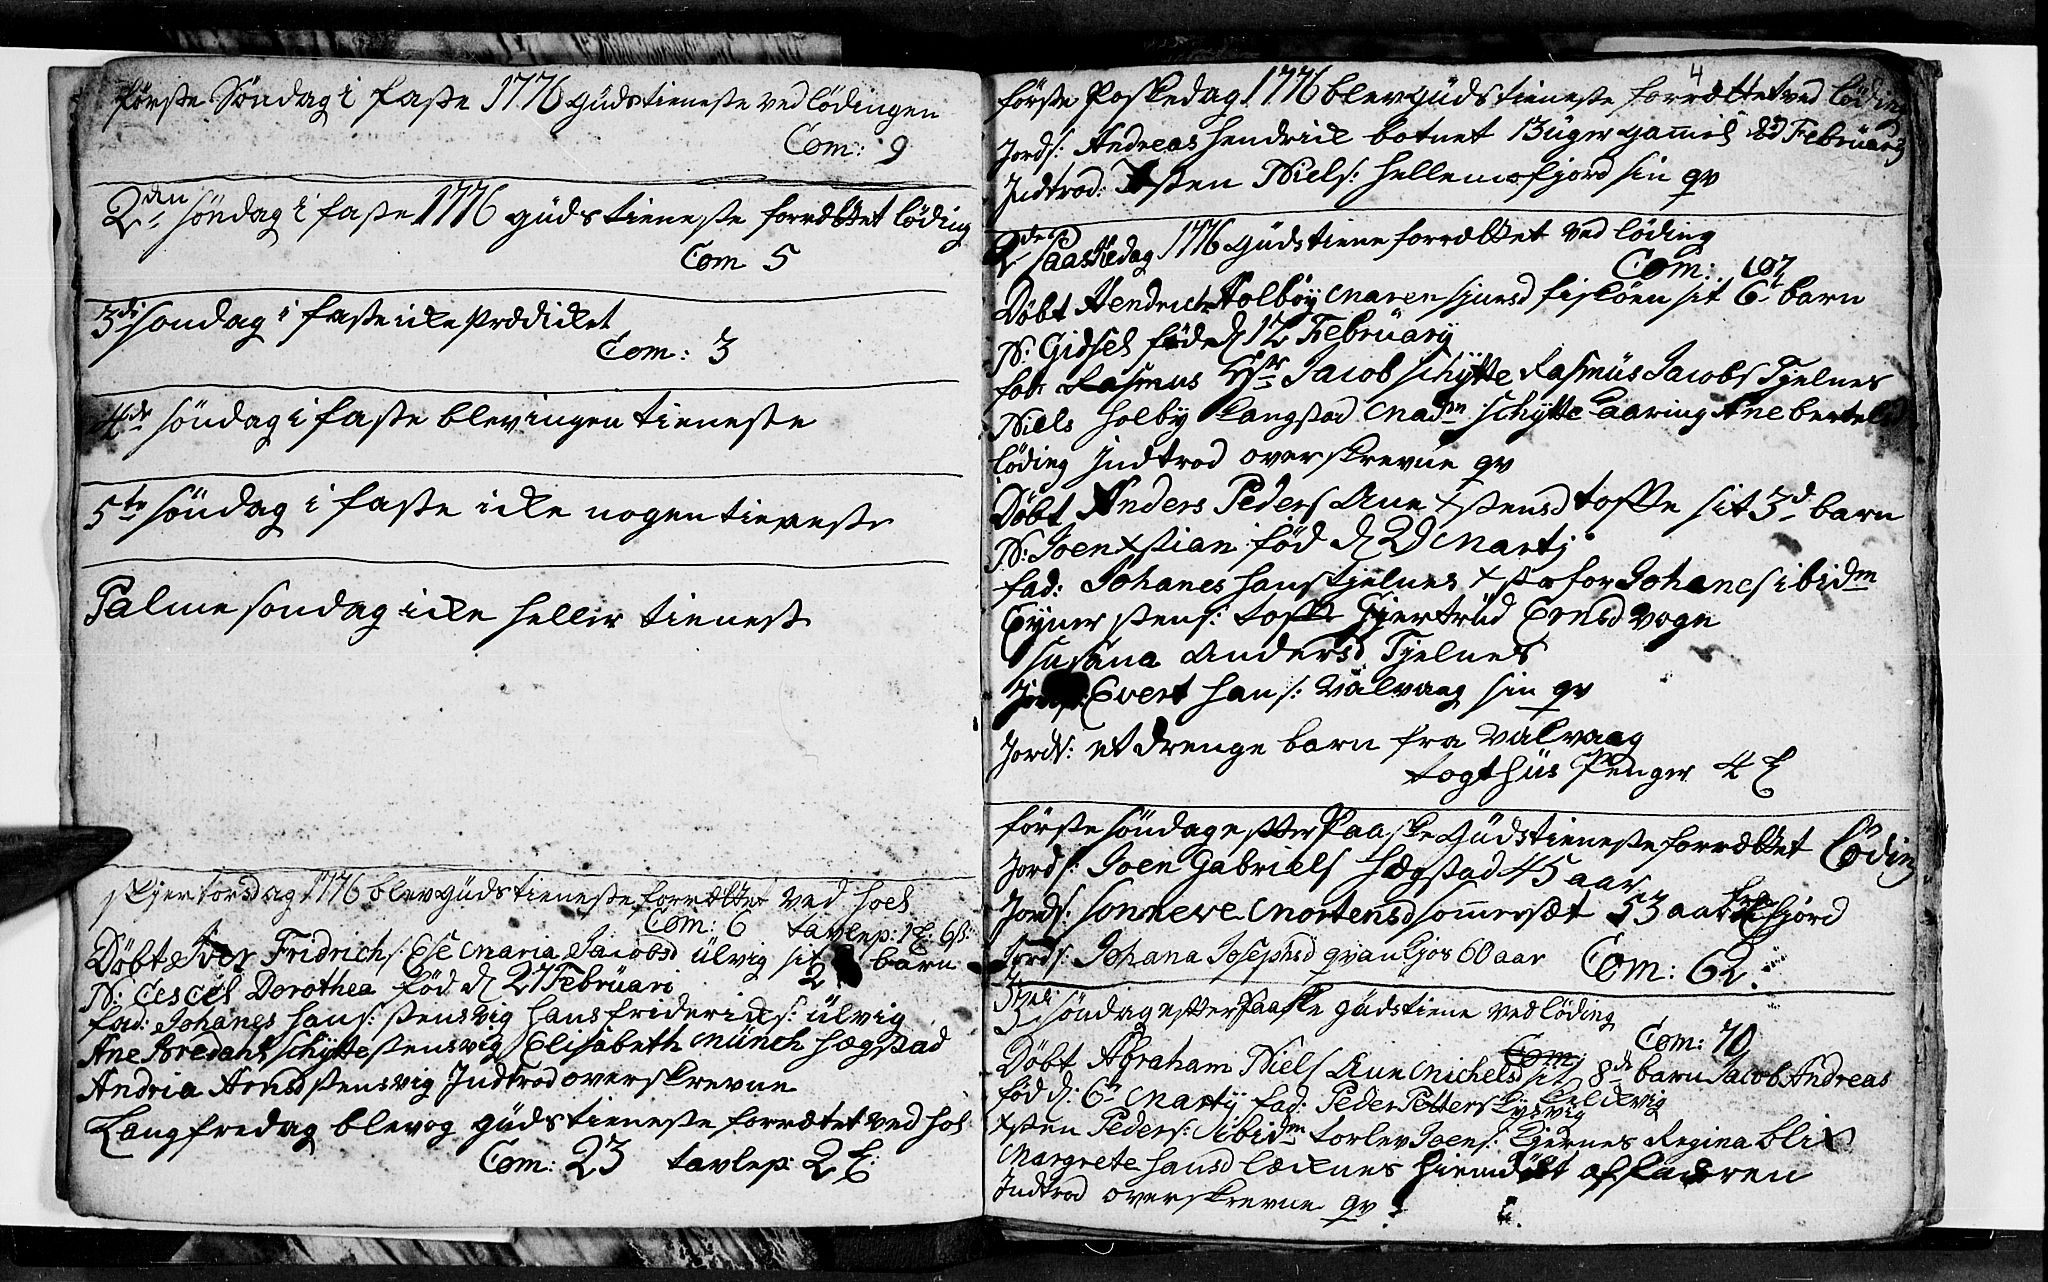 første Søndag i faste 1776 Gudstieneste ved lødingen
Com: 9
2den søndag i faste 1776 gudstieneste forrættet løding
Com 5
3di søndag i faste icke prædicket
Com: 3
4de søndag i faste blev ingen tieneste
5te søndag i faste icke nogen tieneste
Palme søndag icke heller tieneste
skjertorsdag 1776 blev gudstieneste forrættet ved hoel
Com: 6 tavlep: 1 ℔: 6 ß:
Døbt Iver Fridrichs: Else Maria Jacobsd ulvig sit 2 barn
N: Cescel Dorothea fød d 27 Februari
fad: Johanes hans: stensvig hans friderics: ulvig
Ane Bredahl schytte stensvig Elisabeth Münch hægstad
Andria Arnsd stensvig Indtrod overskrevne
Langfredag blev og gudstieneste forrættet ved hol
Com: 23 tavlep: 2 ℔:
4
første Poskedag 1776 blev gudstieneste forrættet ved løding
Jords: Andreas hendrick botnet 13 uger gamel d Februarij
Indtrod: Xsten Niels: hellemofjord sin qv
2den Paaskedag 1776 gudstiene forrættet ved løding
Com: 107
Døbt Hendrich Holbøy Maren sjursd fiskøen sit 6t barn
N: Gidsel fød d 12 Februarij
fad: Rasmus Hr Jacob schytte Rasmus Jacobs Tjelnes
Niels holby kangstad Madm schytte Caaring Ane bertelsd
løding Indtrod overskrevne qv
Døbt Anders Peders Ane Xstensd toffte sit 3d barn
N: Joen Xstian fød d 29 Martj
fad: Johanes hans kjelnes Xstofor Johanes ibidm
Eyner stens: toffte Gjertrud Ernsd vogn
susana Andersd Tjelnes
Evert hans: Valvaag sin qv
Jords: et drenge barn fra valvaag
togthuus Penger 4 ℔
første søndag efter Paaske Gudstieneste forrættet Løding
Jords: Joen Gabriels hægstad 45 aar
Jords: sonneve Mortensd somersæt 53 aar fra fjord
Jords: Johana Josephsd qvankjos 60 aar Com: 62
søndag efter Paaske gudstiene ved løding
Com: 70
Døbt Abraham Niels Ane Michelsd sit 8de barn Jacob Andreas
fød d: 6t Martij fad: Peder Petter skysvig
Xsten Peders: ibidm torlev Joens: kjernes Regina blix
Margrete hansd læcknes hiemdøbt af faderen
Indtrod overskrevne qv